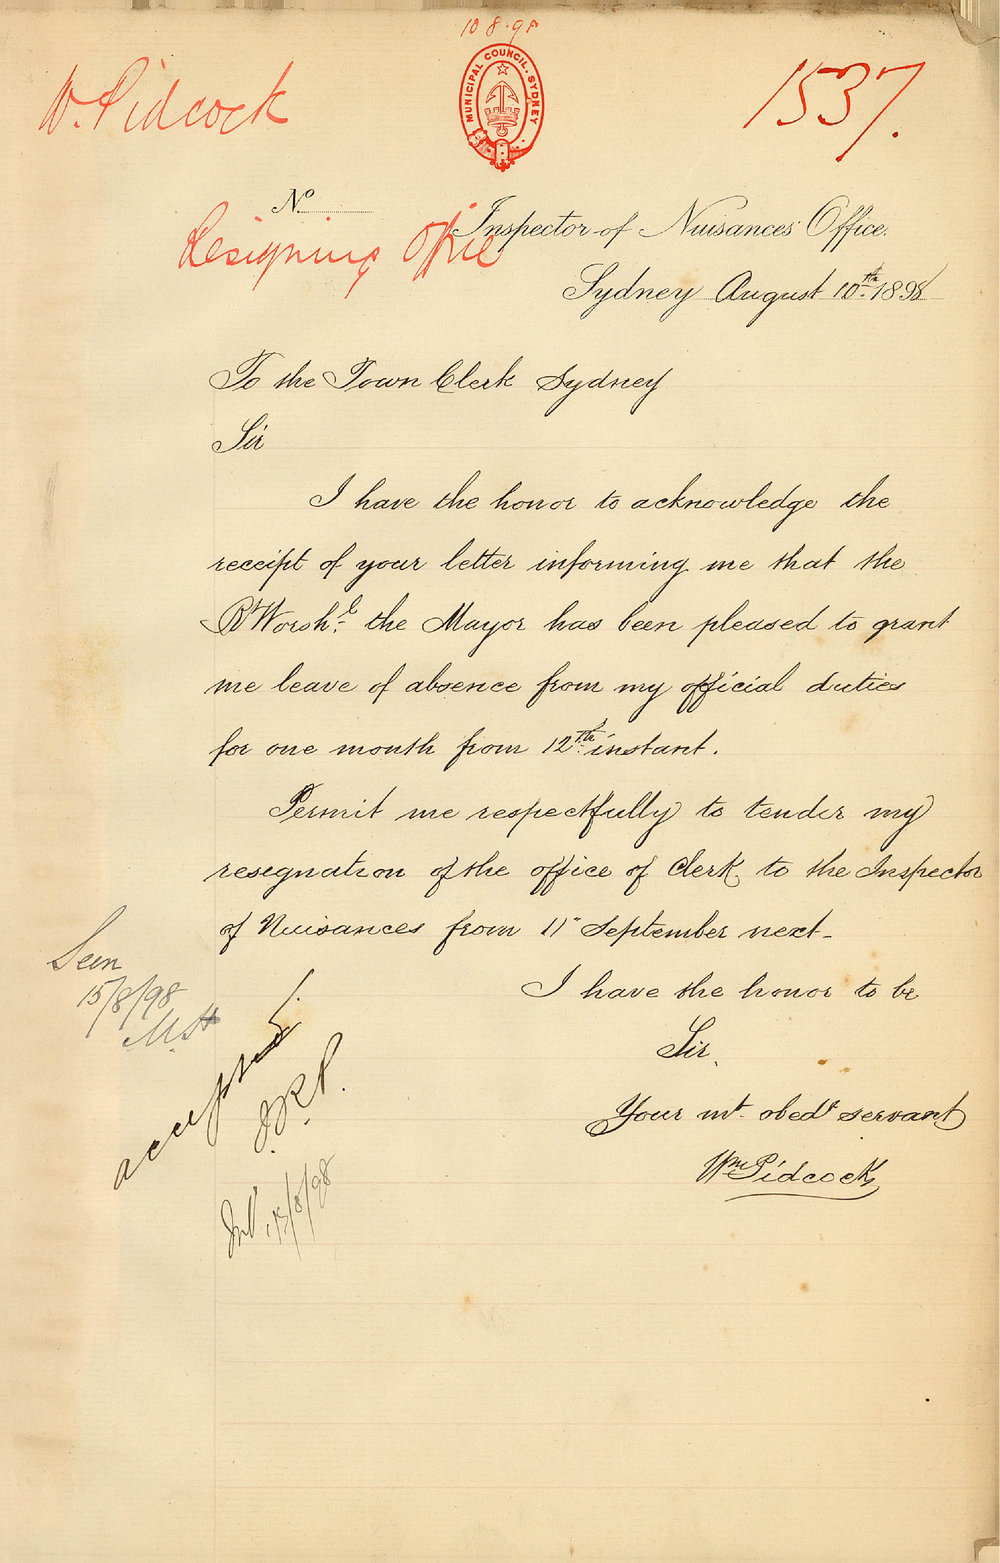 10.8.98
MUNICIPAL COUNCIL. SYDNEY
W. Pidcock
1537.
No
Inspector of Nuisances Office.
Resigning Office
Sydney August 10th 1898
To the Town Clerk Sydney
Sir
I have the honor to acknowledge the
receipt of your letter informing me that the
Rt Worshl the Mayor has been pleased to grant
me leave of absence from my official duties
for one month from 12th instant.
Permit me respectfully to tender my
resignation of the office of Clerk to the Inspector
of Nuisances from 11" September next-
I have the honor to be
Sir,
Your mt obedt servant
Wm Pidcock
Seen
15/8/98
accepted.